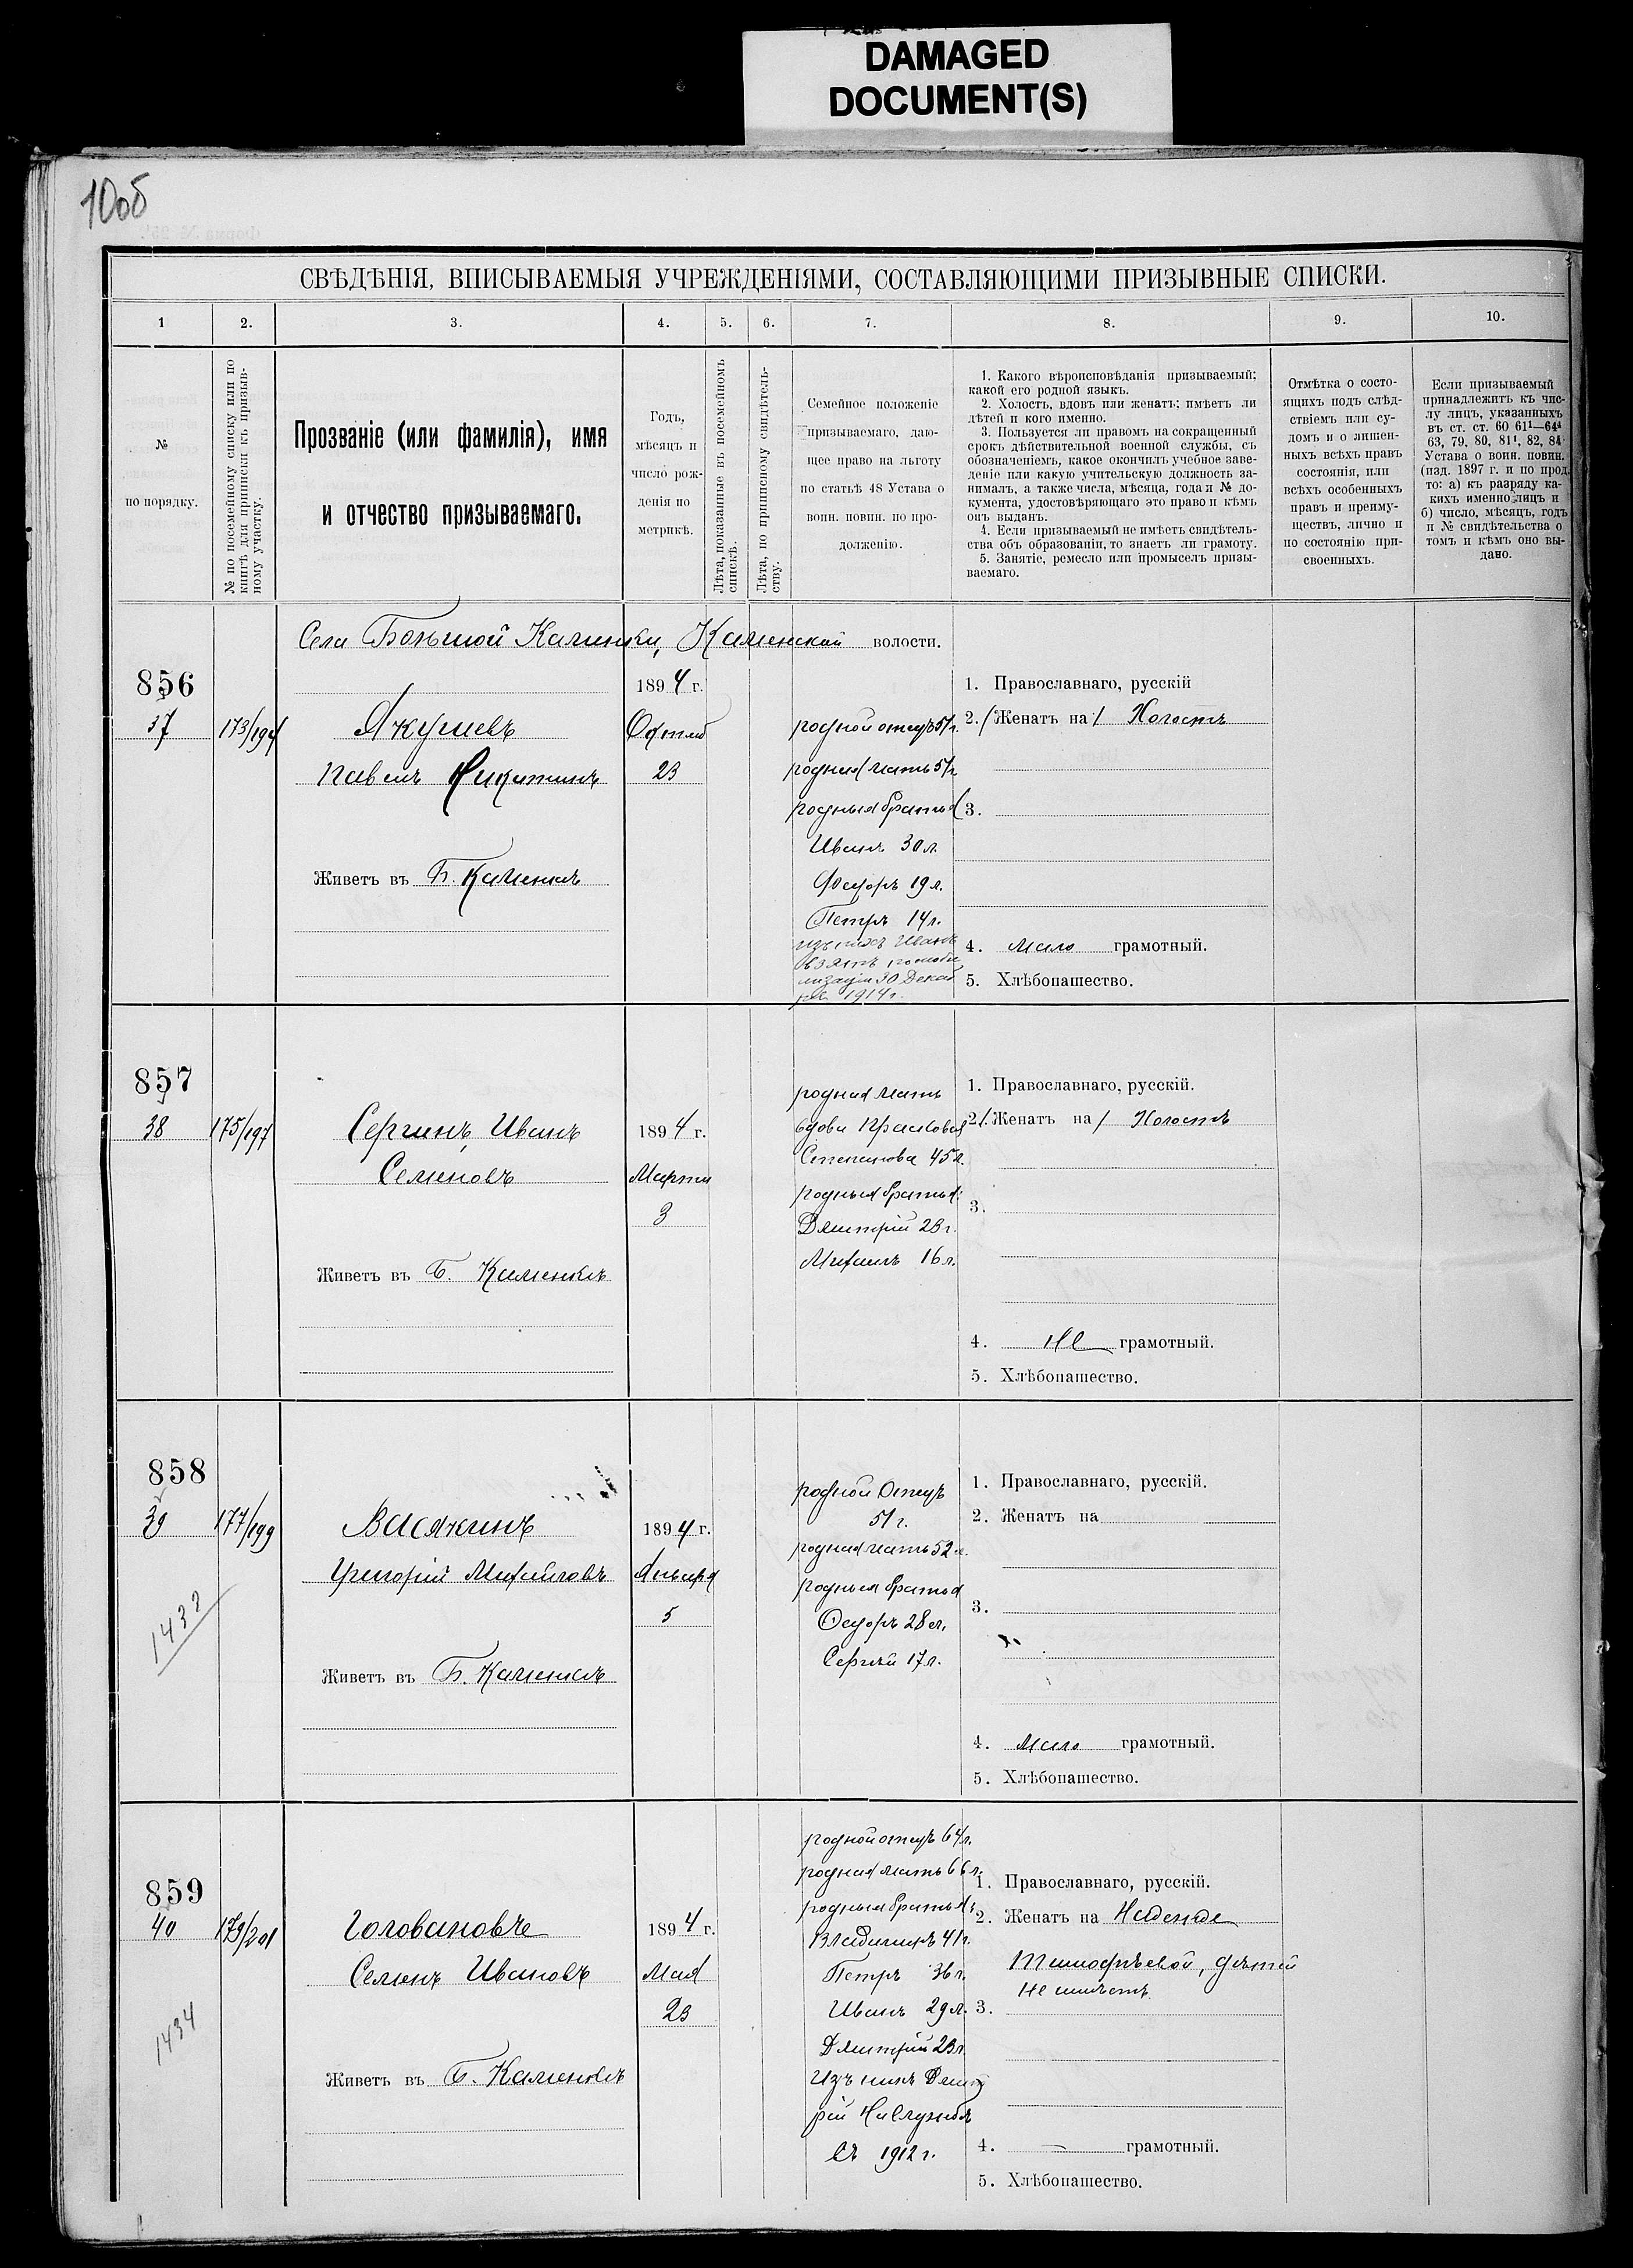 DAMAGED
DOCUMENT(S)
10об
СВѢДѢНІЯ, ВПИСЫВАЕМЫЯ УЧРЕЖДЕНІЯМИ, СОСТАВЛЯЮЩИМИ ПРИЗЫВНЫЕ СПИСКИ.
1 2. 3. 4. 5. 6. 7. 8. 9. 10.
№
по порядку.
№ по посемейному списку или по
книгѣ для приписки къ призыв-
ному участку.
Прозваніе (или фамилія), имя
и отчество призываемаго.
Годъ,
мѣсяцъ и
число рож-
денія по
метрикѣ.
Лѣта, показанные въ посемейномъ
спискѣ.
Лѣта, по приписному свидѣтель-
ству.
Семейное положеніе
призываемаго, даю-
щее право на льготу
по статьѣ 48 Устава о
воин. повин. по про-
долженію.
1. Какого вѣроисповѣданія призываемый;
какой его родной языкъ.
2. Холостъ, вдовъ или женатъ; имѣетъ ли
дѣтей и кого именно.
3. Пользуется ли правомъ на сокращенный
срокъ дѣйствительной военной службы, съ
обозначеніемъ, какое окончилъ учебное заве-
деніе или какую учительскую должность за-
нималъ, а также числа, мѣсяца, года и № до-
кумента, удостовѣряющаго это право и кѣмъ
онъ выданъ.
4. Если призываемый не имѣетъ свидѣтель-
ства объ образованіи, то знаетъ ли грамоту.
5. Занятіе, ремесло или промыселъ призы-
ваемаго.
Отмѣтка о состо-
ящихъ подъ слѣд-
ствіемъ или су-
домъ и о лишен-
ныхъ всѣхъ правъ
состоянія, или
всѣхъ особенныхъ
правъ и преиму-
ществъ, лично и
по состоянію при-
своенныхъ.
Если призываемый
принадлежитъ къ чис-
лу лицъ, указанныхъ
въ ст. ст. 60 61¹—64⁴
63, 79, 80, 81¹, 82, 84
Устава о воин. повин.
(изд. 1897 г. и по прод.
то: а) къ разряду ка-
кихъ именно лицъ и
б) число, мѣсяцъ, годъ
и № свидѣтельства о
томъ и кѣмъ оно вы-
дано.
Села Большой Каменки, Каменской волости.
856
37
173/194
Якушевъ
Павелъ Никитинъ
Живетъ въ Б. Каменкѣ
1894 г.
Октяб
23
родной отецъ 51 г.
родная мать 51 г.
родныя братья
Иванъ 30 л.
Федоръ 19 л.
Петръ 14 л.
изъ нихъ Иванъ
взятъ по моби
лизаціи 30 Декаб
ря 1914 г.
1. Православнаго, русскій
2. /Женатъ на/ Холостъ
3.
4. мало грамотный.
5. Хлѣбопашество.
857
38
175/197
Сергинъ, Иванъ
Семеновъ
Живетъ въ Б. Каменкѣ
1894 г.
Марта
3
родная мать
вдова Прасковья
Степанова 45 л.
родныя братья:
Дмитрій 23 г.
Михаилъ 16 л.
1. Православнаго, русскій.
2. /Женатъ на/ Холостъ
3.
4. не грамотный.
5. Хлѣбопашество.
858
39
177/199
1432
Васякинъ
Григорій Михайловъ
Живетъ въ Б. Каменкѣ
1894 г.
Января
5
родной отецъ
51 г.
родная мать 52 л.
родныя братья
Федоръ 28 л.
Сергѣй 17 л.
1. Православнаго, русскій.
2. Женатъ на
3.
4. мало грамотный.
5. Хлѣбопашество.
859
40
179/201
1434
Головановъ
Семенъ Ивановъ
Живетъ въ Б. Каменкѣ
1894 г.
Мая
23
родной отецъ 64 л.
родная мать 66 л.
родныя братья:
Владимиръ 41 г.
Петръ 36 л.
Иванъ 29 л.
Дмитрій 23 л.
Изъ нихъ Дмит
рій на службѣ
съ 1912 г.
1. Православнаго, русскій.
2. Женатъ на Надежде
Тимофѣевой, дѣтей
не имѣетъ
3.
4. — грамотный.
5. Хлѣбопашество.